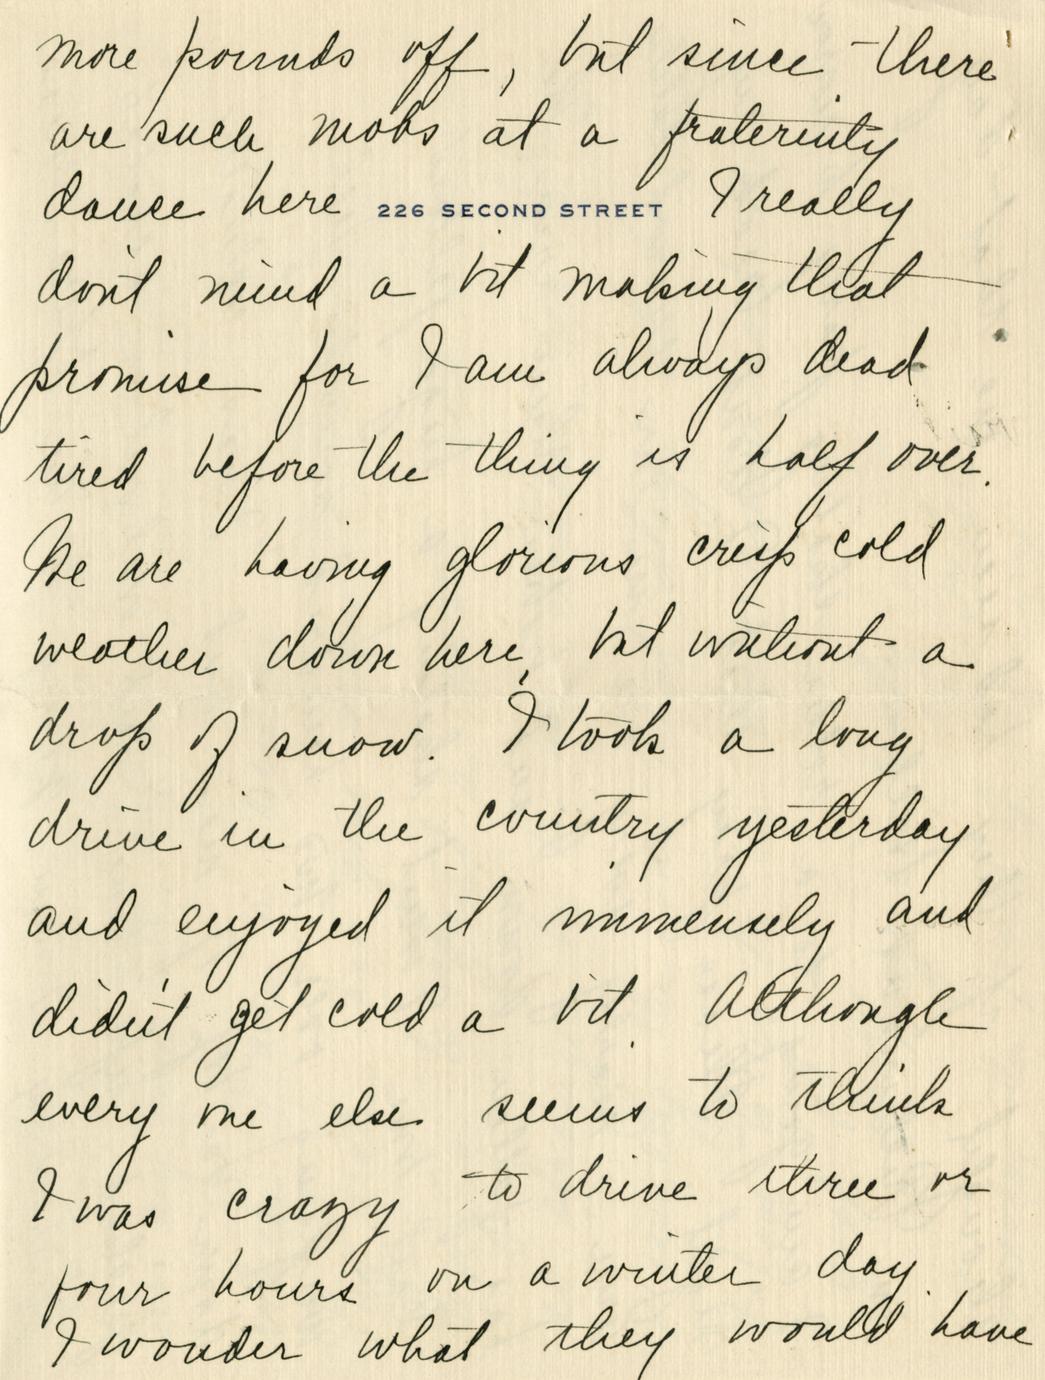 more pounds off, but since there
are such mobs at a fraternity
dance here 226 SECOND STREET I really
don't mind a bit making that
promise for I am always dead
tired before the thing is half over.
We are having glorious crisp cold
weather down here, but without a
drop of snow. I took a long
drive in the country yesterday
and enjoyed it immensely and
didn't get cold a bit. Although
every one else seems to think
I was crazy to drive three or
four hours on a winter day.
I wonder what they would have